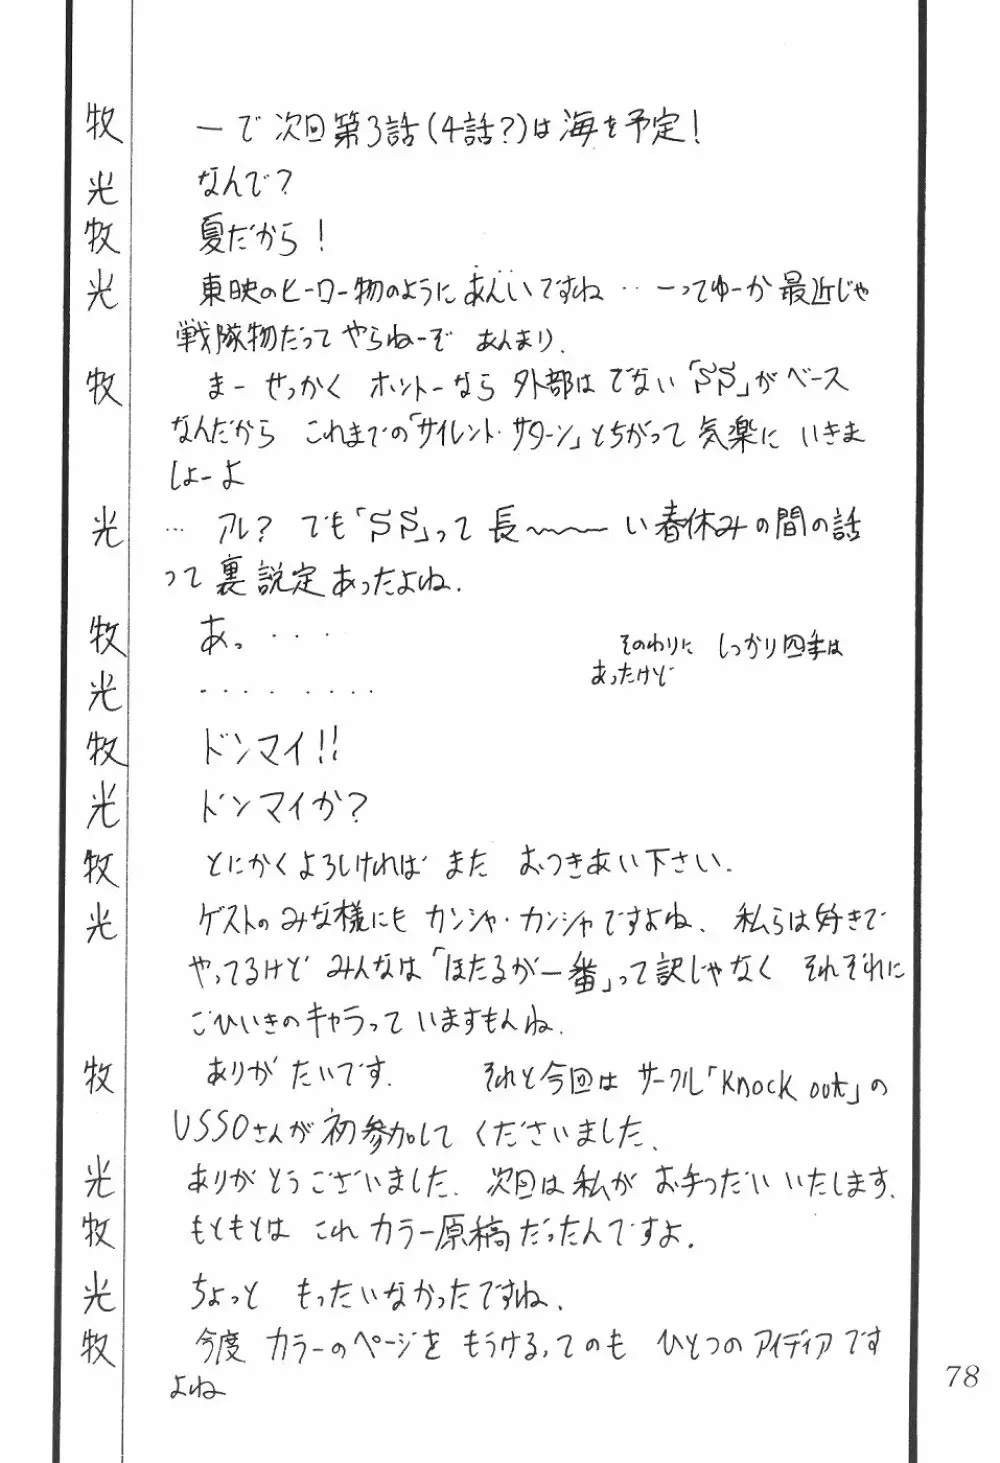 牧 ーで 次回第3話(4話?)は海を予定!
光 なんで?
牧 夏だから!
光 東映のヒーロー物のようにあんいですね…ーってゆーか最近じゃ
戦隊物だって やらねーぞ あんまり.
牧 まー せっかく ホントーなら 外部はでない「SS」がベース
なんだから これまでの「サイレント・サターン」とちがって 気楽に いきま
しょーよ
光 … アレ? でも「SS」って 長〜〜〜い春休みの間の話
って裏説定あったよね.
牧 あっ・・・・
そのわりに しっかり四季は
あったけど
光 ・・・・ ・・・・
牧 ドンマイ!!
光 ドンマイか?
牧 とにかくよろしければ また おつきあい下さい.
光 ゲストのみな様にも カンシャ・カンシャですよね. 私らは好きで
やってるけど みんなは「ほたるが一番」って訳じゃなく それぞれに
ごひいきのキャラって いますもんね.
牧 ありがたいです. それと今回は サークル「Knock out」の
USSOさんが初参加して くださいました.
光 ありがとうございました. 次回は私が お手つだい いたします.
牧 もともとは これ カラー原稿だったんですよ.
光 ちょっと もったいなかったですね.
牧 今度 カラーのページを もうける,てのも ひとつの アイディアです
よね
78